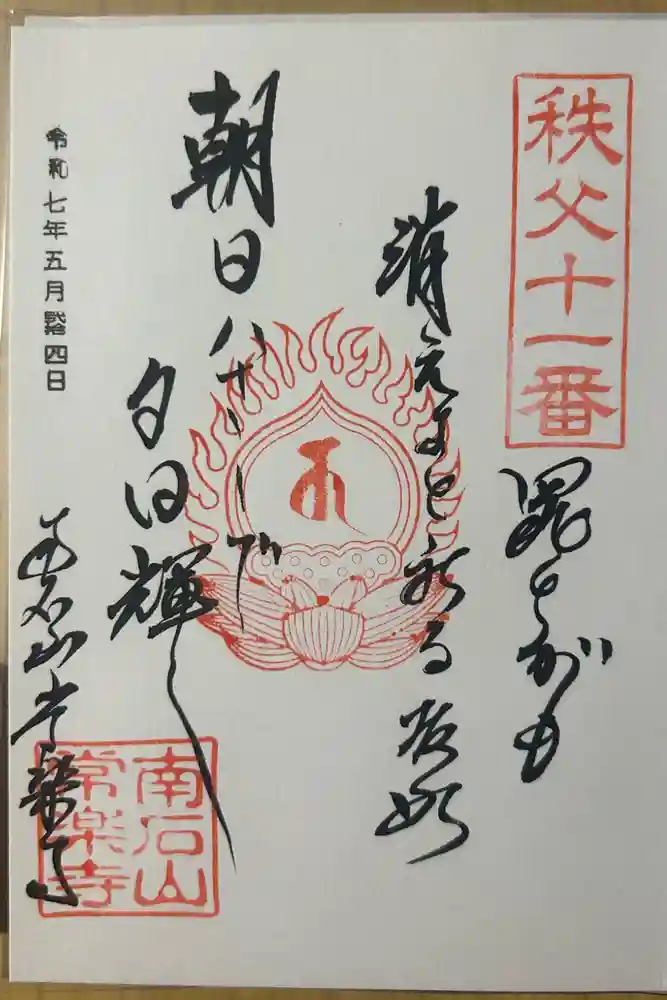 秩父十一番
罪とがも
消えよと祈る坂氷
朝日ハさゝで
夕日輝く
南石山常楽寺
南石山
常楽寺
令和七年五月四日